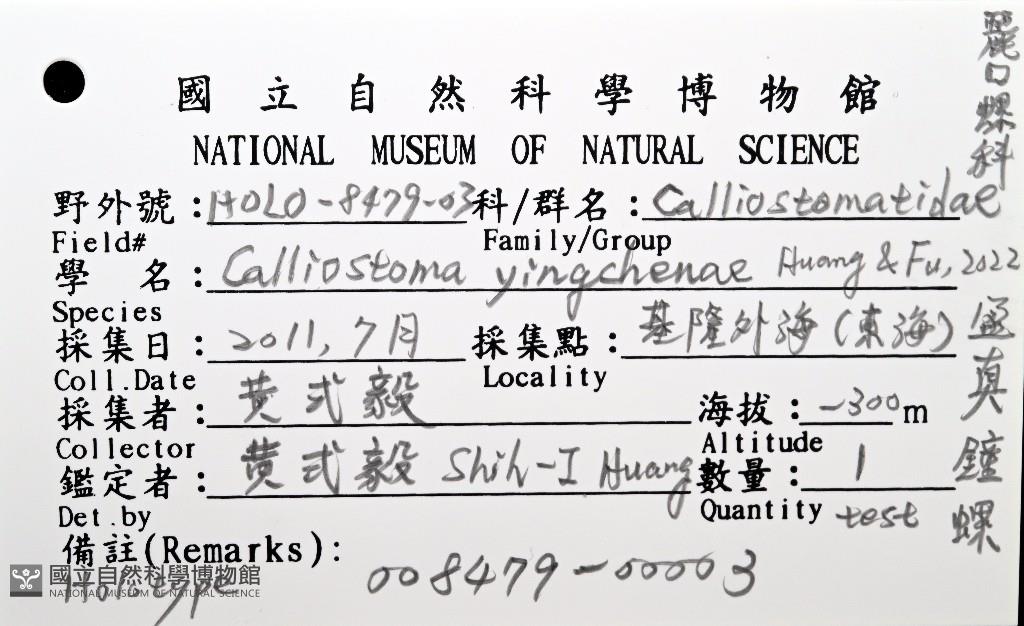 國立自然科學博物館
NATIONAL MUSEUM OF NATURAL SCIENCE
野外號: HOLO-8479-03 科/群名: Calliostomatidae 麗口螺科
Field# Family/Group
學名: Calliostoma yingchenae Huang & Fu, 2022
Species
採集日: 2011, 7月 採集點: 基隆外海(東海)
Coll.Date Locality
採集者: 黃式毅 海拔: -300m
Collector Altitude
鑑定者: 黃式毅 Shih-I Huang 數量: 1
Det.by Quantity test
真鐘螺
備註(Remarks):
Holotype 008479-00003
國立自然科學博物館
NATIONAL MUSEUM OF NATURAL SCIENCE